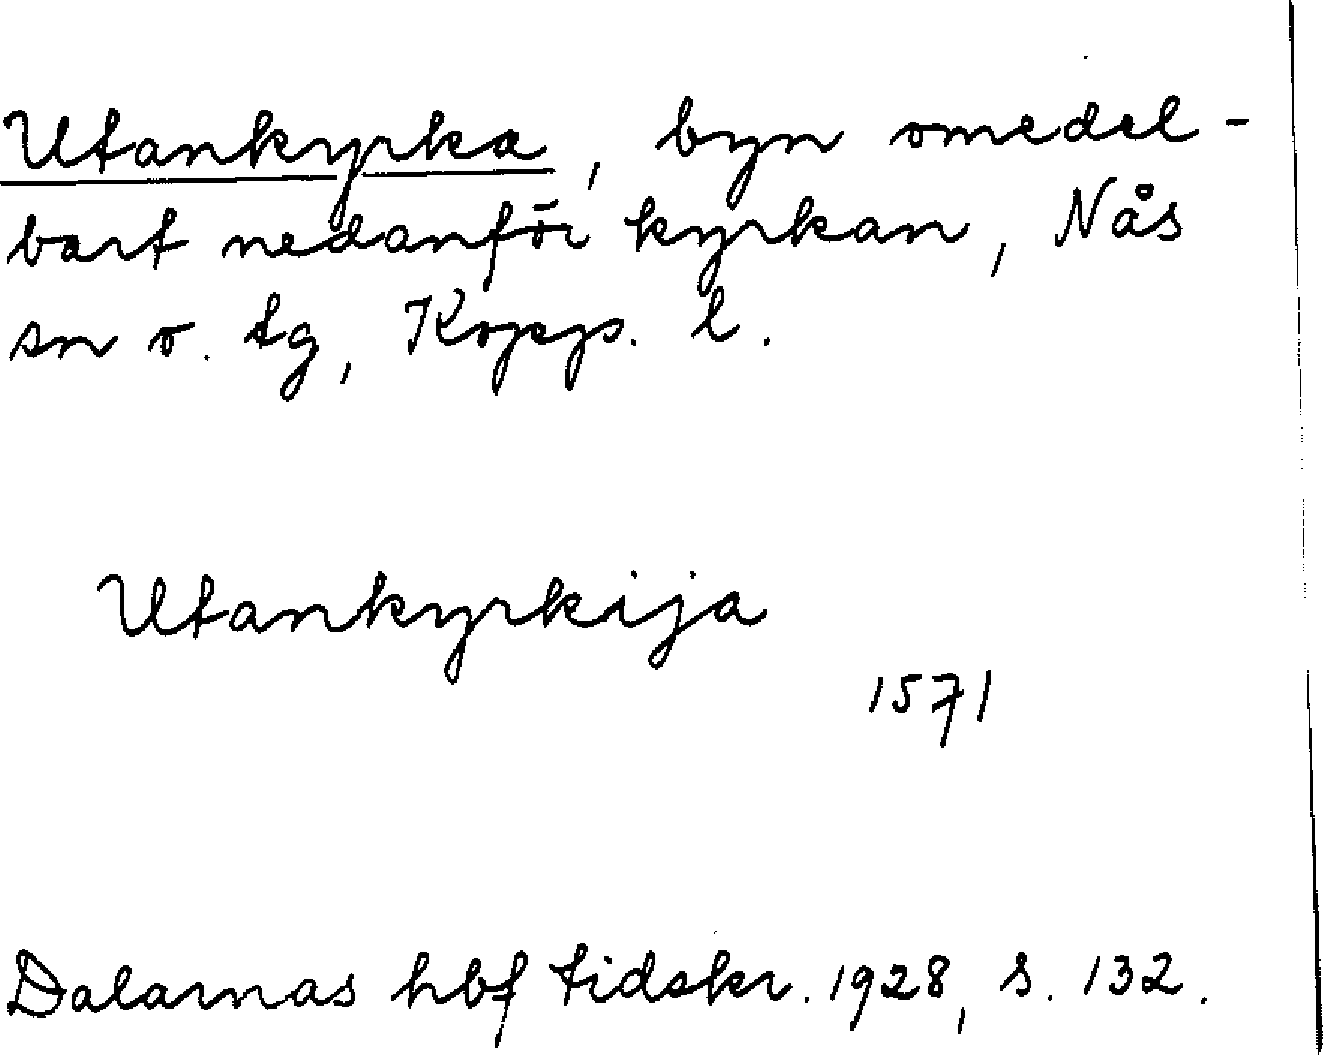 Utankyrka, byn omedel-
bart nedanför kyrkan, Nås
sn o. tg, Kopps. l.
Utankyrkija
1571
Dalarnas hbf tidskr. 1928, s. 132.